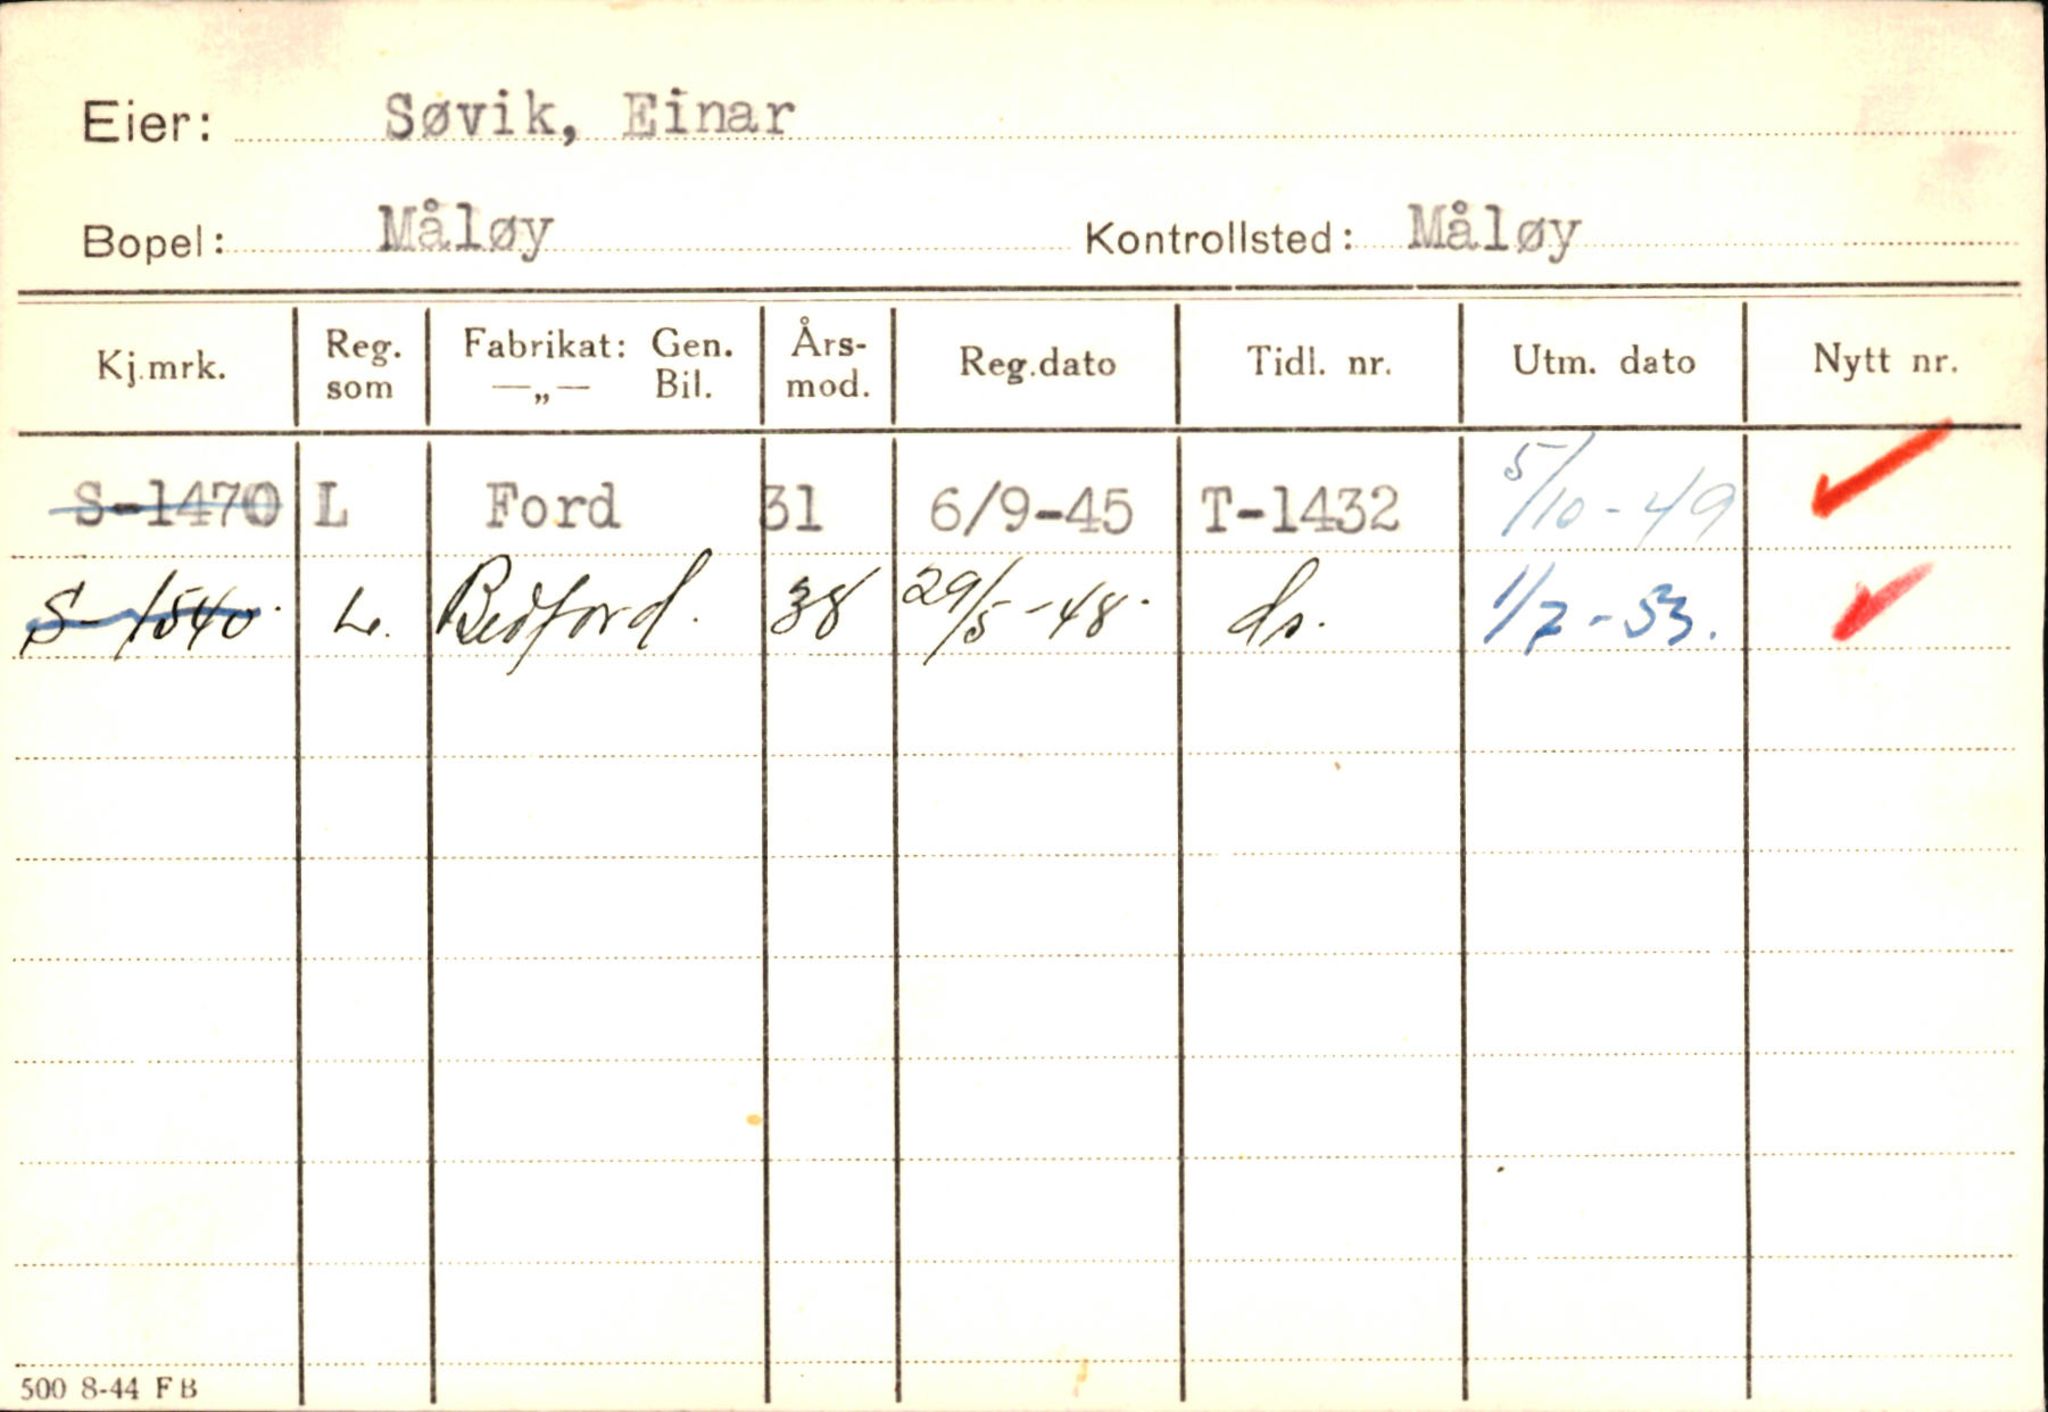 Eier: Søvik, Einar
Bopel: Måløy Kontrollsted: Måløy
Kj.mrk. Reg. som Fabrikat: Gen. —„— Bil. Års-mod. Reg.dato Tidl. nr. Utm. dato Nytt nr.
S-1470 L Ford 31 6/9-45 T-1432 5/10-49
S-1540. L. Bedford. 38 29/5-48. ds. 1/7-53.
500 8-44 FB